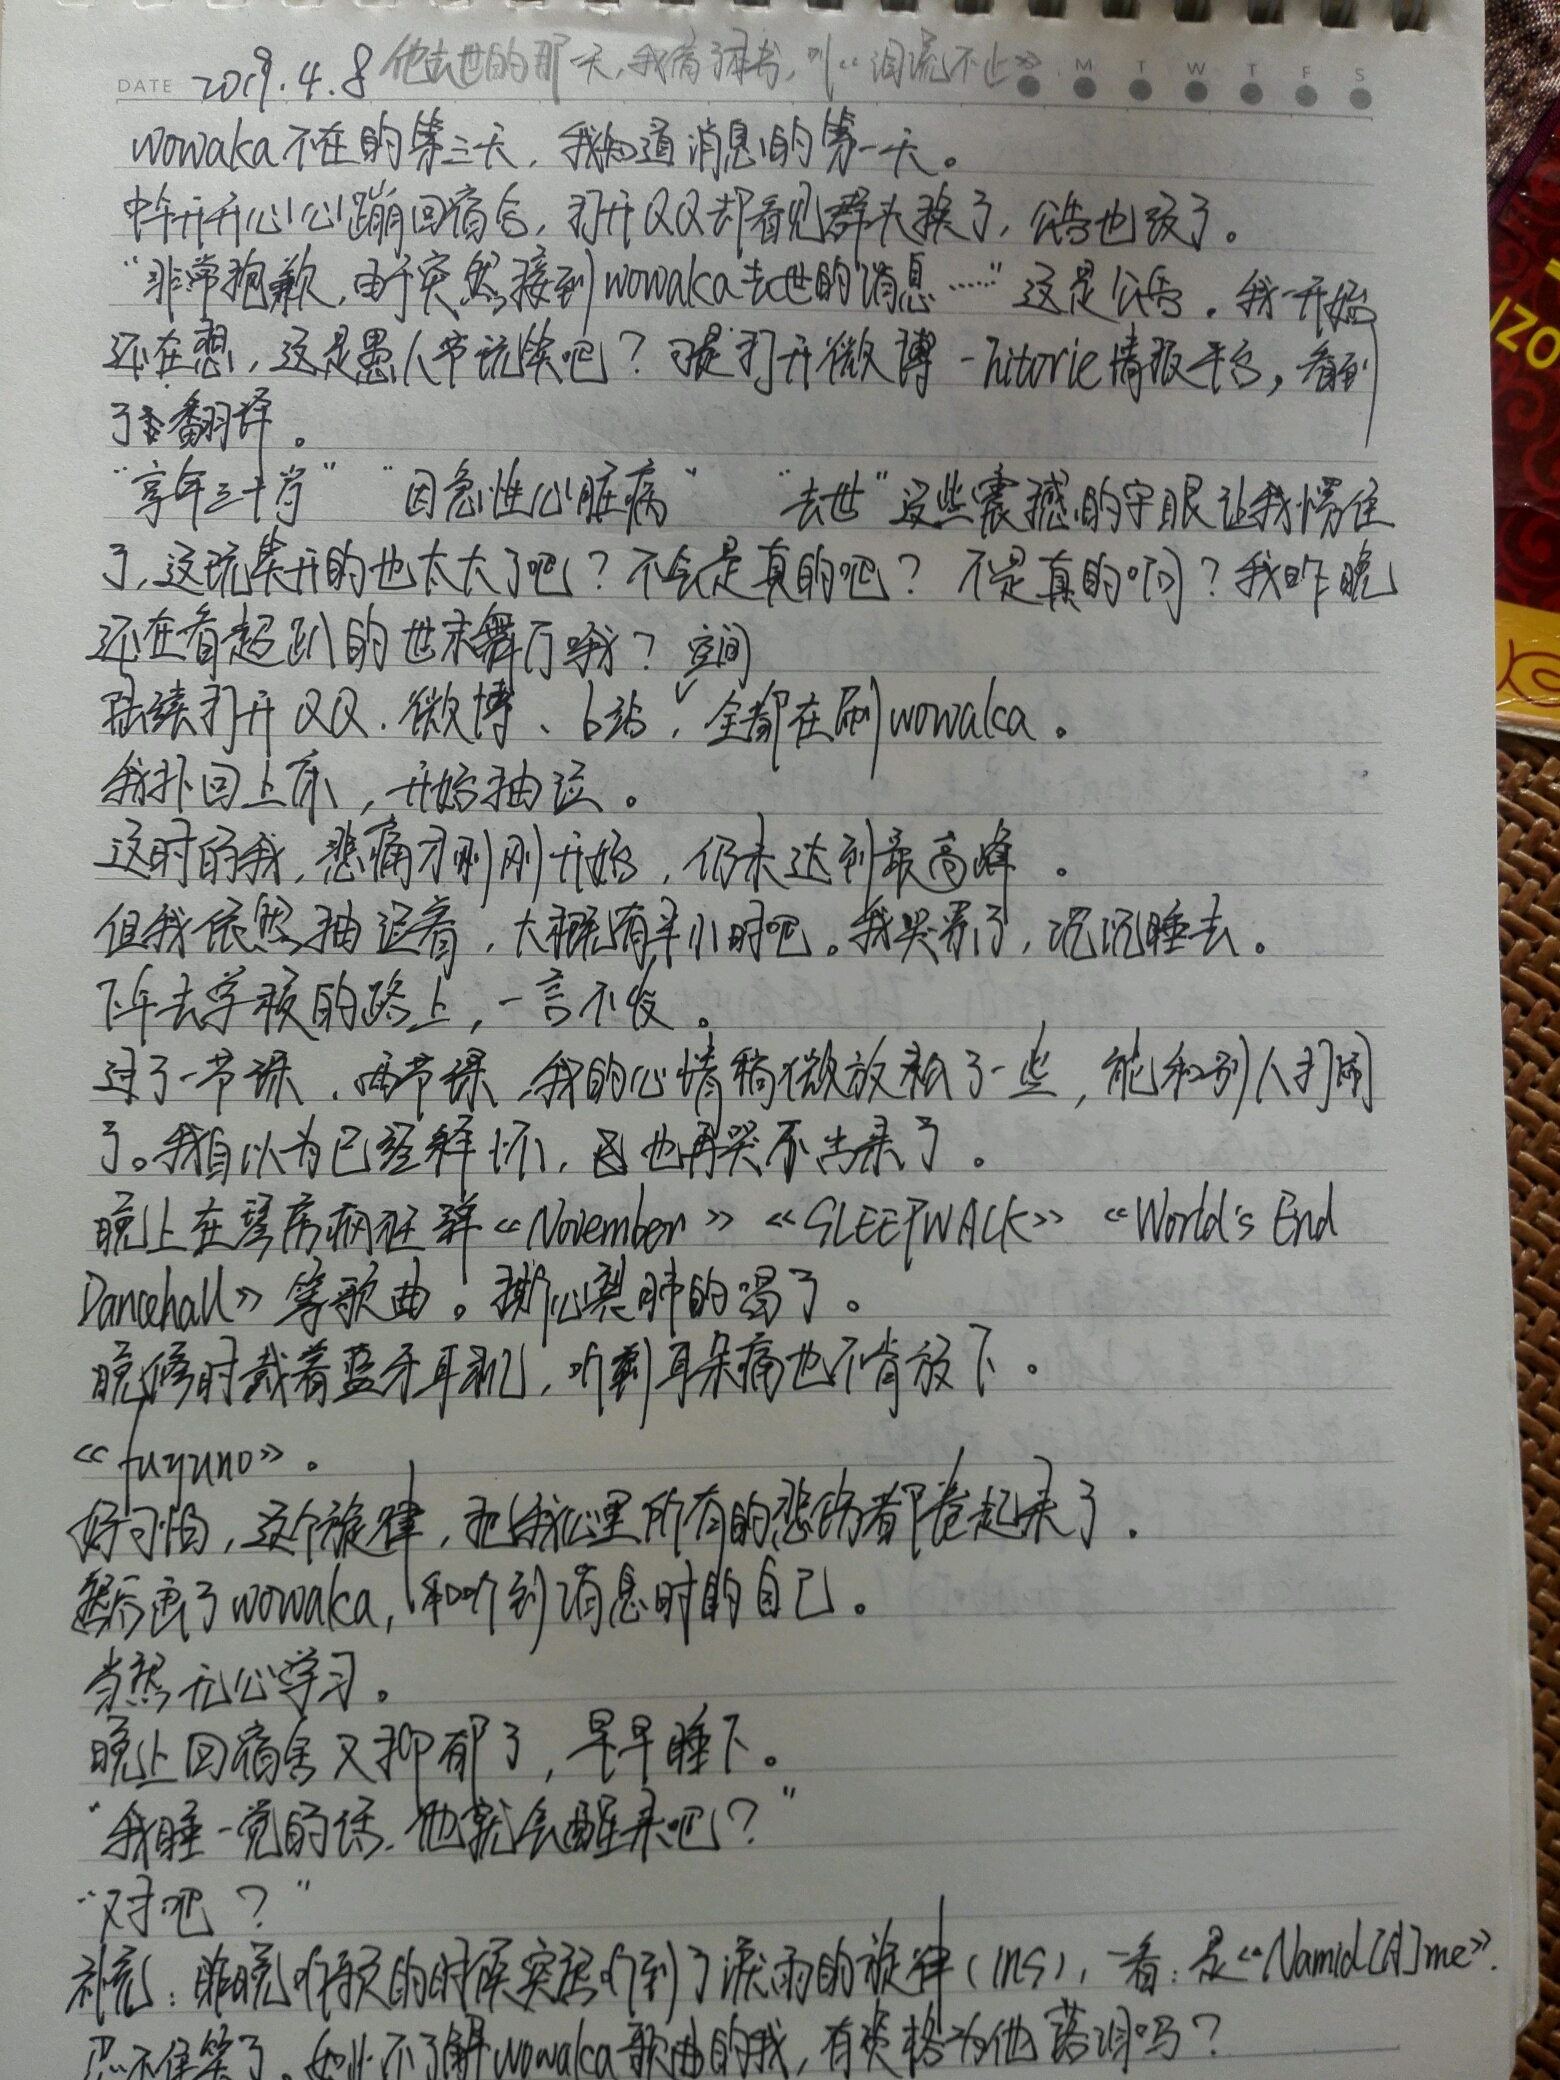 DATE 2019.4.8 他去世的那一天,我 ,叫《泪流不止》 M T W T F S
wowaka不在的第三天,我知道消息的第一天。
中午开开心心蹦回宿舍,打开QQ却看见群头换了,公告也改了。
“非常抱歉,由于突然接到wowaka去世的消息……”这是公告。我一开始
还在想,这是愚人节玩笑吧?可是打开微博-hitorie情报平台,看到
了翻译。
“享年三十岁” “因急性心脏病” “去世”这些震撼的字眼让我愣住
了,这玩笑开的也太大了吧?不会是真的吧?不是真的啊?我昨晚
还在看超趴的世末舞厅哦?
陆续打开QQ、微博、b站空间,全都在刷wowaka。
我扑回上床,开始抽泣。
这时的我,悲痛才刚刚开始,仍未达到最高峰。
但我依然抽泣着,大概有半小时吧。我哭累了,沉沉睡去。
下午去学校的路上,一言不发。
过了一节课、两节课,我的心情稍微放松了一些,能和别人打闹
了。我自以为已经释怀,也再哭不出来了。
晚上在琴房疯狂弹《November》《SLEEPWALK》《World's End
Dancehall》等歌曲。撕心裂肺的唱了。
晚修时戴着蓝牙耳机,听到耳朵痛也不肯放下。
《fuyuno》。
好可怕,这个旋律,把我心里所有的悲伤都卷起来了。
然后画了wowaka,和听到消息时的自己。
当然无心学习。
晚上回宿舍又抑郁了,早早睡下。
“我睡一觉的话,他就会醒来吧?”
“对吧?”
补充:昨晚听歌的时候突然听到了泪雨的旋律(ins),一看:是《Namid[A]me》.
忍不住笑了。如此不了解wowaka歌曲的我,有资格为他落泪吗?
IZO